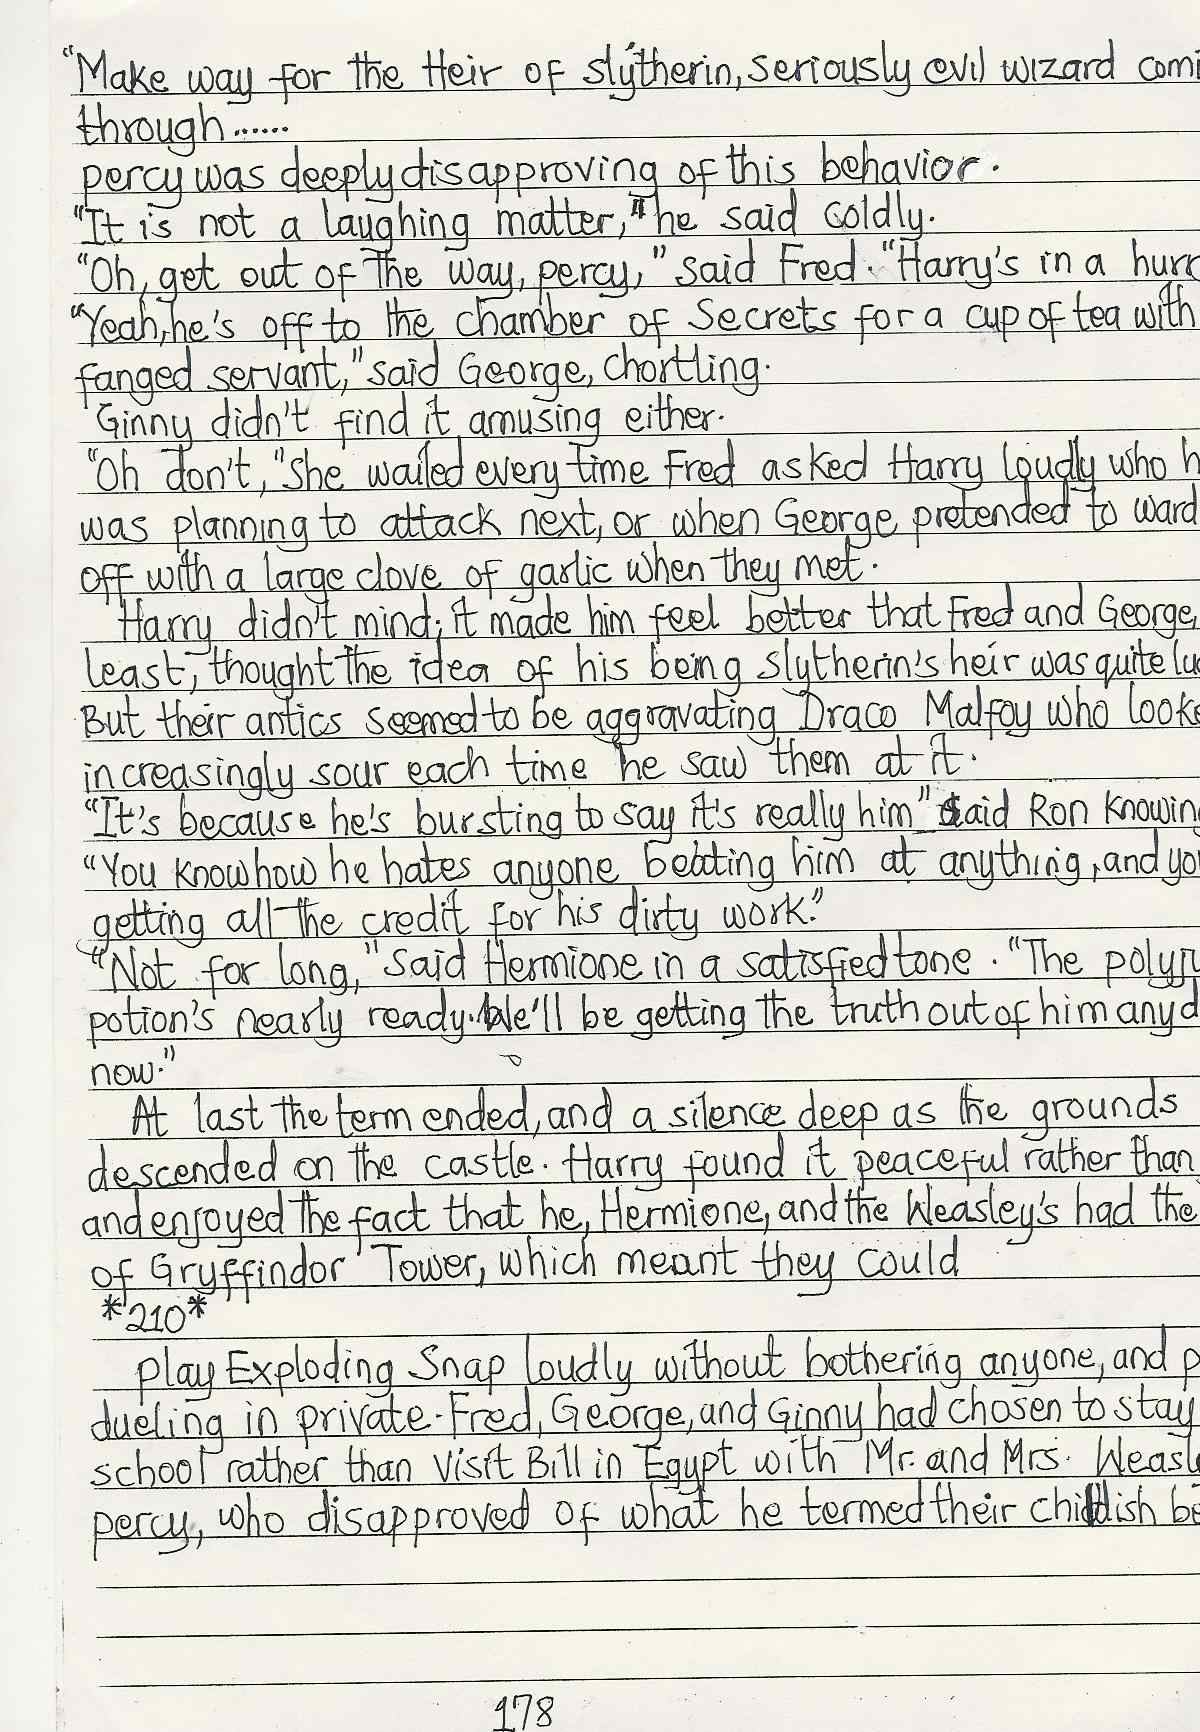 "Make way for the Heir of slytherin, seriously evil wizard comi
through......
percy was deeply disapproving of this behavior.
"It is not a laughing matter," he said coldly.
"Oh, get out of The way, percy," said Fred. "Harry's in a hurr
"Yeah, he's off to the chamber of Secrets for a cup of tea with
fanged servant," said George, chortling.
Ginny didn't find it amusing either.
"Oh don't," she wailed every time Fred asked Harry loudly who h
was planning to attack next, or when George pretended to ward
off with a large clove of garlic when they met.
Harry didn't mind; it made him feel better that Fred and George,
least, thought the idea of his being slytherin's heir was quite lu
But their antics seemed to be aggravating Draco Malfoy who looks
increasingly sour each time he saw them at it.
"It's because he's bursting to say it's really him" said Ron knowing
"You know how he hates anyone beating him at anything, and yo
getting all the credit for his dirty work."
"Not for long," said Hermione in a satisfied tone. "The polyju
potion's nearly ready. We'll be getting the truth out of him any d
now."
At last the term ended, and a silence deep as the grounds
descended on the castle. Harry found it peaceful rather than
and enjoyed the fact that he, Hermione, and the Weasley's had the
of Gryffindor Tower, which meant they could
*210*
play Exploding Snap loudly without bothering anyone, and p
dueling in private. Fred, George, and Ginny had chosen to stay
school rather than visit Bill in Egypt with Mr. and Mrs. Weasle
percy, who disapproved of what he termed their childish be
178